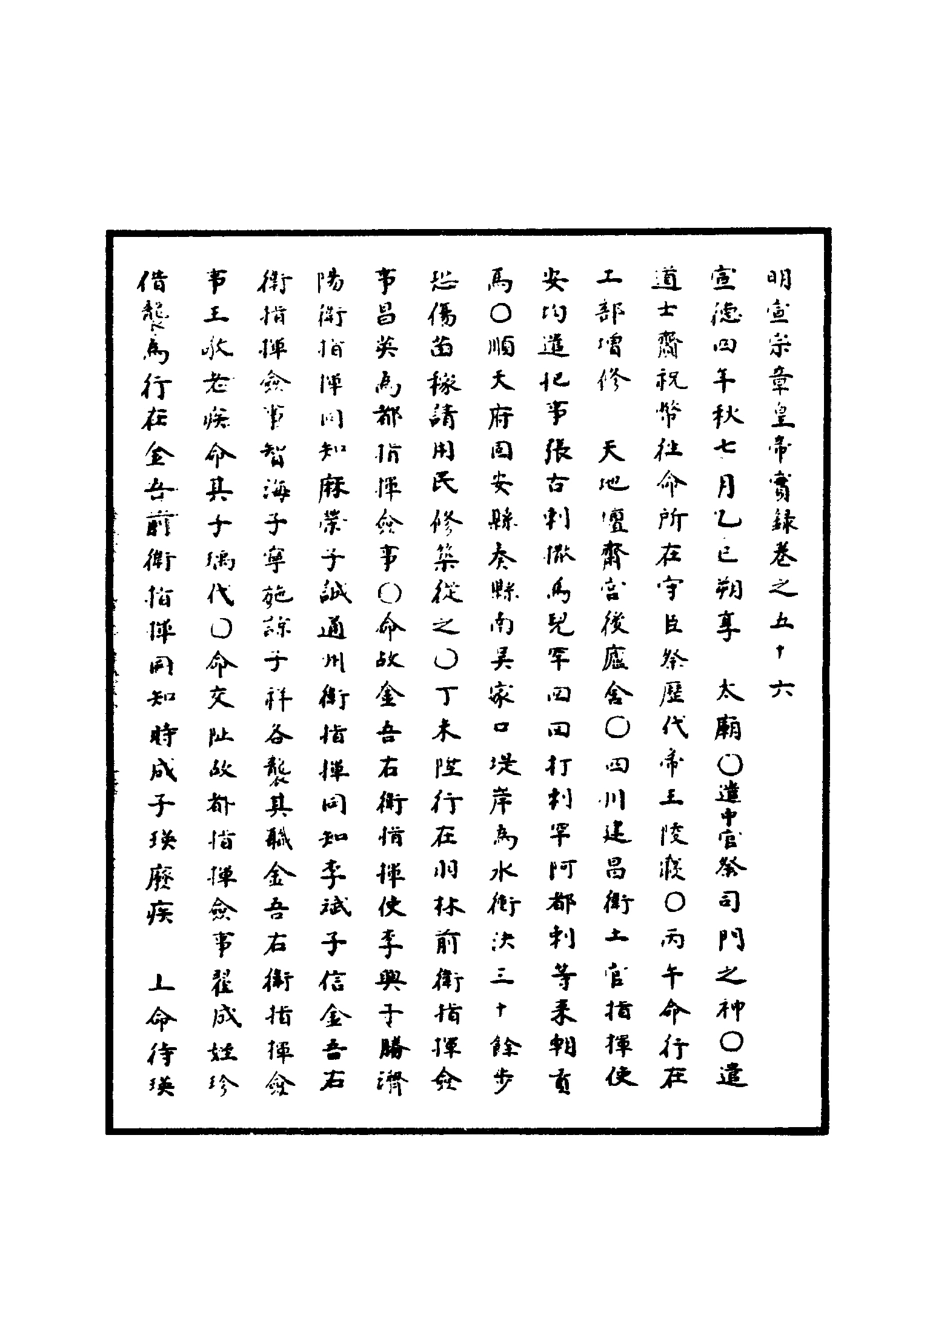 明宣宗章皇帝實錄卷之五十六
宣德四年秋七月乙巳朔享　太廟○遣中官祭司門之神○遣
道士齋祝幣往命所在守臣祭歷代帝王陵寢○丙午命行在
工部增修　天地壇齋宮後廬舍○四川建昌衛土官指揮使
安均遣把事張古剌撒馬兒罕回回打剌罕阿都剌等來朝貢
馬○順天府固安縣奏縣南吳家口堤岸為水衝決三十餘步
恐傷苗稼請用民修築從之○丁未陞行在羽林前衛指揮僉
事昌英為都指揮僉事○命故金吾右衛指揮使李興子勝濟
陽衛指揮同知麻榮子誠通州衛指揮同知李斌子信金吾右
衛指揮僉事智海子寧施諒子祥各襲其職金吾右衛指揮僉
事王敬老疾命其子瑀代○命交阯故都指揮僉事翟成姪珍
借襲為行在金吾前衛指揮同知時成子瑛廢疾　上命待瑛